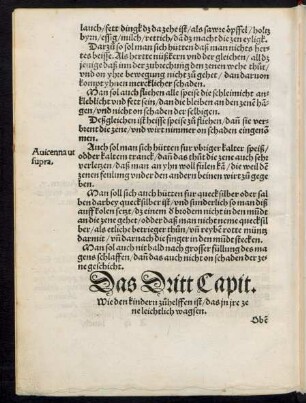 lauch/fett ding kdz da zehe ist/als sawre öpffel/holtz
byrn/essig/milch/rettich/dz dz macht die zen eyligk.
Darzů so sol man sich hütten daß man nichts her
tes beisse. Als hertte nüßkern vnd der gleichen/all dz
jenige daß inn der zubrechung den zenen wehe thůt/
vnd on yhre bewegung nicht zů gehet/dan daruon
kompt yhnen mercklicher schaden.
Man sol auch fliehen alle speiß die schleimicht an
kleblicht vnd fett sein/dan die bleiben an den zenē hā
gen/vnd nicht on schaden der selbigen.
Deßgleichen ist heisse speiß zů fliehen/dan sie ver
brent die zene/vnd wirt nimmer on schaden eingenō
men.
Auicenna vt
supra.
Auch sol man sich hütten fur vbriger kalter speiß/
odder kaltem tranck/dan das thůt die zene auch sehr
verletzen/daß man an yhn woll fülen kā/die weil dē
zenen senlung vnder den andern beinen wirt zů gege
ben.
Man soll sich auch hütten fur quecksilber oder sal
ben darbey quecksilber ist/vnd sunderlich so man diß
auff kolen setzt/dz einem d broden nicht in den mūdt
an die zene gehet/odder daß man nicht neme quecksil
ber/als etliche betrieger thůn/vn reybē rotte müntz
darmit/vn darnach die finger in den müdt stecken.
Man sol auch nit bald nach grosser füllung des ma
gens schlaffen/dan das auch nicht on schaden der ze
ne geschicht.
Das Dritt Capit.
Wie den kindern zů helffen ist/das jn jre ze
ne leichtlich wagsen.
Obē